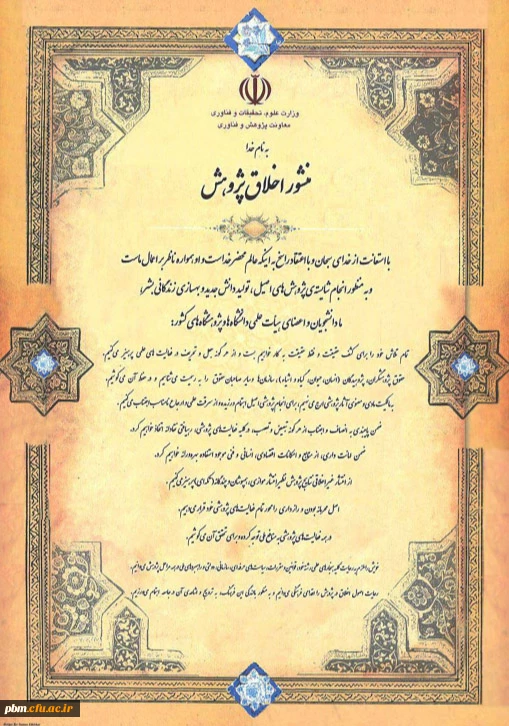 وزارت علوم، تحقیقات و فناوری
معاونت پژوهش و فناوری
به نام خدا
منشور اخلاق پژوهش
با استعانت از خدای سبحان و با اعتقاد راسخ به اینکه عالم محضر خداست و او همواره ناظر بر اعمال ماست
و به منظور انجام شایسته‌ی پژوهش‌های اصیل، تولید دانش جدید و بهسازی زندگانی بشر،
ما دانشجویان و اعضای هیات علمی دانشگاه‌ها و پژوهشگاه‌های کشور:
تمام تلاش خود را برای کشف حقیقت و فقط حقیقت به کار خواهیم بست و از هر گونه جعل و تحریف در فعالیت های علمی پرهیز می‌کنیم.
حقوق پژوهشگران، پژوهیدگان (انسان، حیوان، گیاه و اشیاء)، سازمان‌ها و سایر صاحبان حقوق را به رسمیت می‌شناسیم و در حفظ آن می کوشیم.
به مالکیت مادی و معنوی آثار پژوهشی ارج می‌نهیم، برای انجام پژوهشی اصیل اهتمام ورزیده و از سرقت علمی و ارجاع نامناسب اجتناب می‌کنیم.
ضمن پایبندی به انصاف و اجتناب از هر گونه تبعیض و تعصب، در کلیه فعالیت‌های پژوهشی، رهیافتی نقادانه اتخاذ خواهیم کرد.
ضمن امانت داری، از منابع و امکانات اقتصادی، انسانی و فنی موجود استفاده بهره‌ورانه خواهیم کرد.
از انتشار غیراخلاقی نتایج پژوهش نظیر انتشار موازی، همپوشان و چندگانه (تکه‌ای) پرهیز می‌کنیم.
اصل محرمانه بودن و رازداری را محور تمام فعالیت‌های پژوهشی خود قرار می‌دهیم.
در همه فعالیت‌های پژوهشی به منافع ملی توجه کرده و برای تحقق آن می کوشیم.
خویش را ملزم به رعایت کلیه هنجارهای علمی رشته خود، قوانین و مقررات، سیاست‌های حرفه‌ای، سازمانی، دولتی و راهبردهای ملی در همه مراحل پژوهش می‌دانیم.
رعایت اصول اخلاق در پژوهش را اقدامی فرهنگی می‌دانیم و به منظور بالندگی این فرهنگ، به ترویج و اشاعه‌ی آن در جامعه اهتمام می‌ورزیم.
pbm.cfu.ac.ir